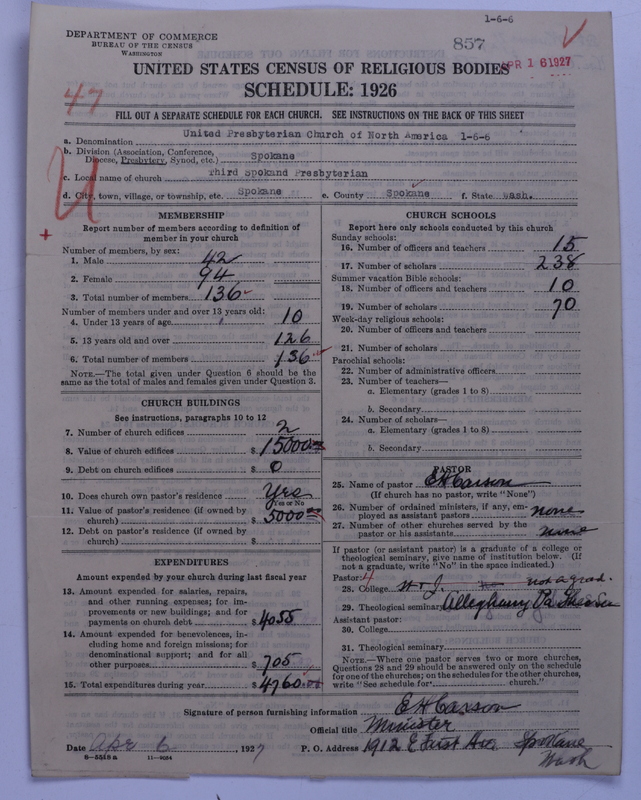 1-6-6
DEPARTMENT OF COMMERCE
BUREAU OF THE CENSUS
WASHINGTON
857
APR 16 1927
UNITED STATES CENSUS OF RELIGIOUS BODIES
SCHEDULE: 1926
47
FILL OUT A SEPARATE SCHEDULE FOR EACH CHURCH. SEE INSTRUCTIONS ON THE BACK OF THIS SHEET
a. Denomination United Presbyterian Church of North America 1-6-6
b. Division (Association, Conference, Diocese, Presbytery, Synod, etc.) Spokane
c. Local name of church Third Spokand Presbyterian
d. City, town, village, or township, etc. Spokane e. County Spokane f. State Wash.
U
MEMBERSHIP
Report number of members according to definition of
member in your church
Number of members, by sex:
1. Male 42
2. Female 94
3. Total number of members 136
Number of members under and over 13 years old:
4. Under 13 years of age 10
5. 13 years old and over 126
6. Total number of members 136
NOTE.—The total given under Question 6 should be
same as the total of males and females given under Question 3.
CHURCH BUILDINGS
See instructions, paragraphs 10 to 12
7. Number of church edifices 2
8. Value of church edifices $ 15000.00
9. Debt on church edifices $ 0
10. Does church own pastor's residence Yes
Yes or No
11. Value of pastor's residence (if owned by
church) $ 5000.00
12. Debt on pastor's residence (if owned by
church) $
EXPENDITURES
Amount expended by your church during last fiscal year
13. Amount expended for salaries, repairs,
and other running expenses; for im-
provements or new buildings; and for
payments on church debt $ 4055
14. Amount expended for benevolences, in-
cluding home and foreign missions; for
denominational support; and for all
other purposes $ 705
15. Total expenditures during year $ 4760
CHURCH SCHOOLS
Report here only schools conducted by this church
Sunday schools:
16. Number of officers and teachers 15
17. Number of scholars 238
Summer vacation Bible schools:
18. Number of officers and teachers 10
19. Number of scholars 70
Week-day religious schools:
20. Number of officers and teachers
21. Number of scholars
Parochial schools:
22. Number of administrative officers
23. Number of teachers—
a. Elementary (grades 1 to 8)
b. Secondary
24. Number of scholars—
a. Elementary (grades 1 to 8)
b. Secondary
PASTOR
25. Name of pastor E H Carson
(If church has no pastor, write "None")
26. Number of ordained ministers, if any, em-
ployed as assistant pastors none
27. Number of other churches served by the
pastor or his assistants none
If pastor (or assistant pastor) is a graduate of a college or
theological seminary, give name of institution below. (If
not a graduate, write "No" in the space indicated.)
Pastor: 4
28. College W & J. not a grad.
29. Theological seminary Allegheny Pa
Assistant pastor:
30. College
31. Theological seminary
NOTE.—Where one pastor serves two or more churches,
Questions 28 and 29 should be answered only on the schedule
for one of the churches; on the schedules for the other churches,
write "See schedule for church."
Signature of person furnishing information E H Carson
Official title Minister
Date Apr 6, 1927 P. O. Address 1912 E First Ave Spokane
Wash
6-5518 a 11-9054